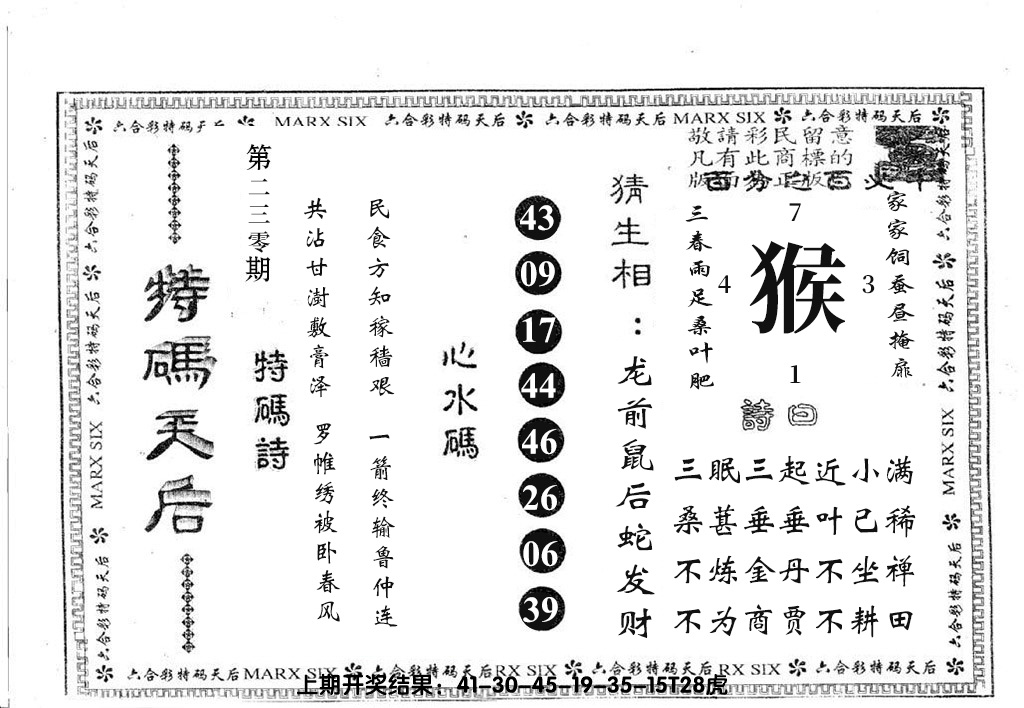 六合彩特码天后 MARX SIX 六合彩特码天后 六合彩特码天后 MARX SIX 六合彩特码天后
敬請彩民留意
凡有此商標的
家家饲蚕昼掩扉
7
4 猴 3
1
三春雨足桑叶肥
詩曰
三眠三起近小满
桑甚垂垂叶已稀
不炼金丹不坐禅
不为商贾不耕田
猜生相：龙前鼠后蛇发财
43
09
17
44
46
26
06
39
心水碼
民食方知稼穑艰 一箭终输鲁仲连
共沾甘澍敷膏泽 罗帷绣被卧春风
特碼詩
第二三零期
特碼天后
六合彩特码天后 MARX SIX 六合彩特码天后
六合彩特码天后 MARX SIX 六合彩特码天后
六合彩特码天后 MARX SIX 六合彩特码天后 RX SIX 六合彩特码天后 RX SIX 六合彩特码天后
上期开奖结果：41-30-45-19-35-15T28虎